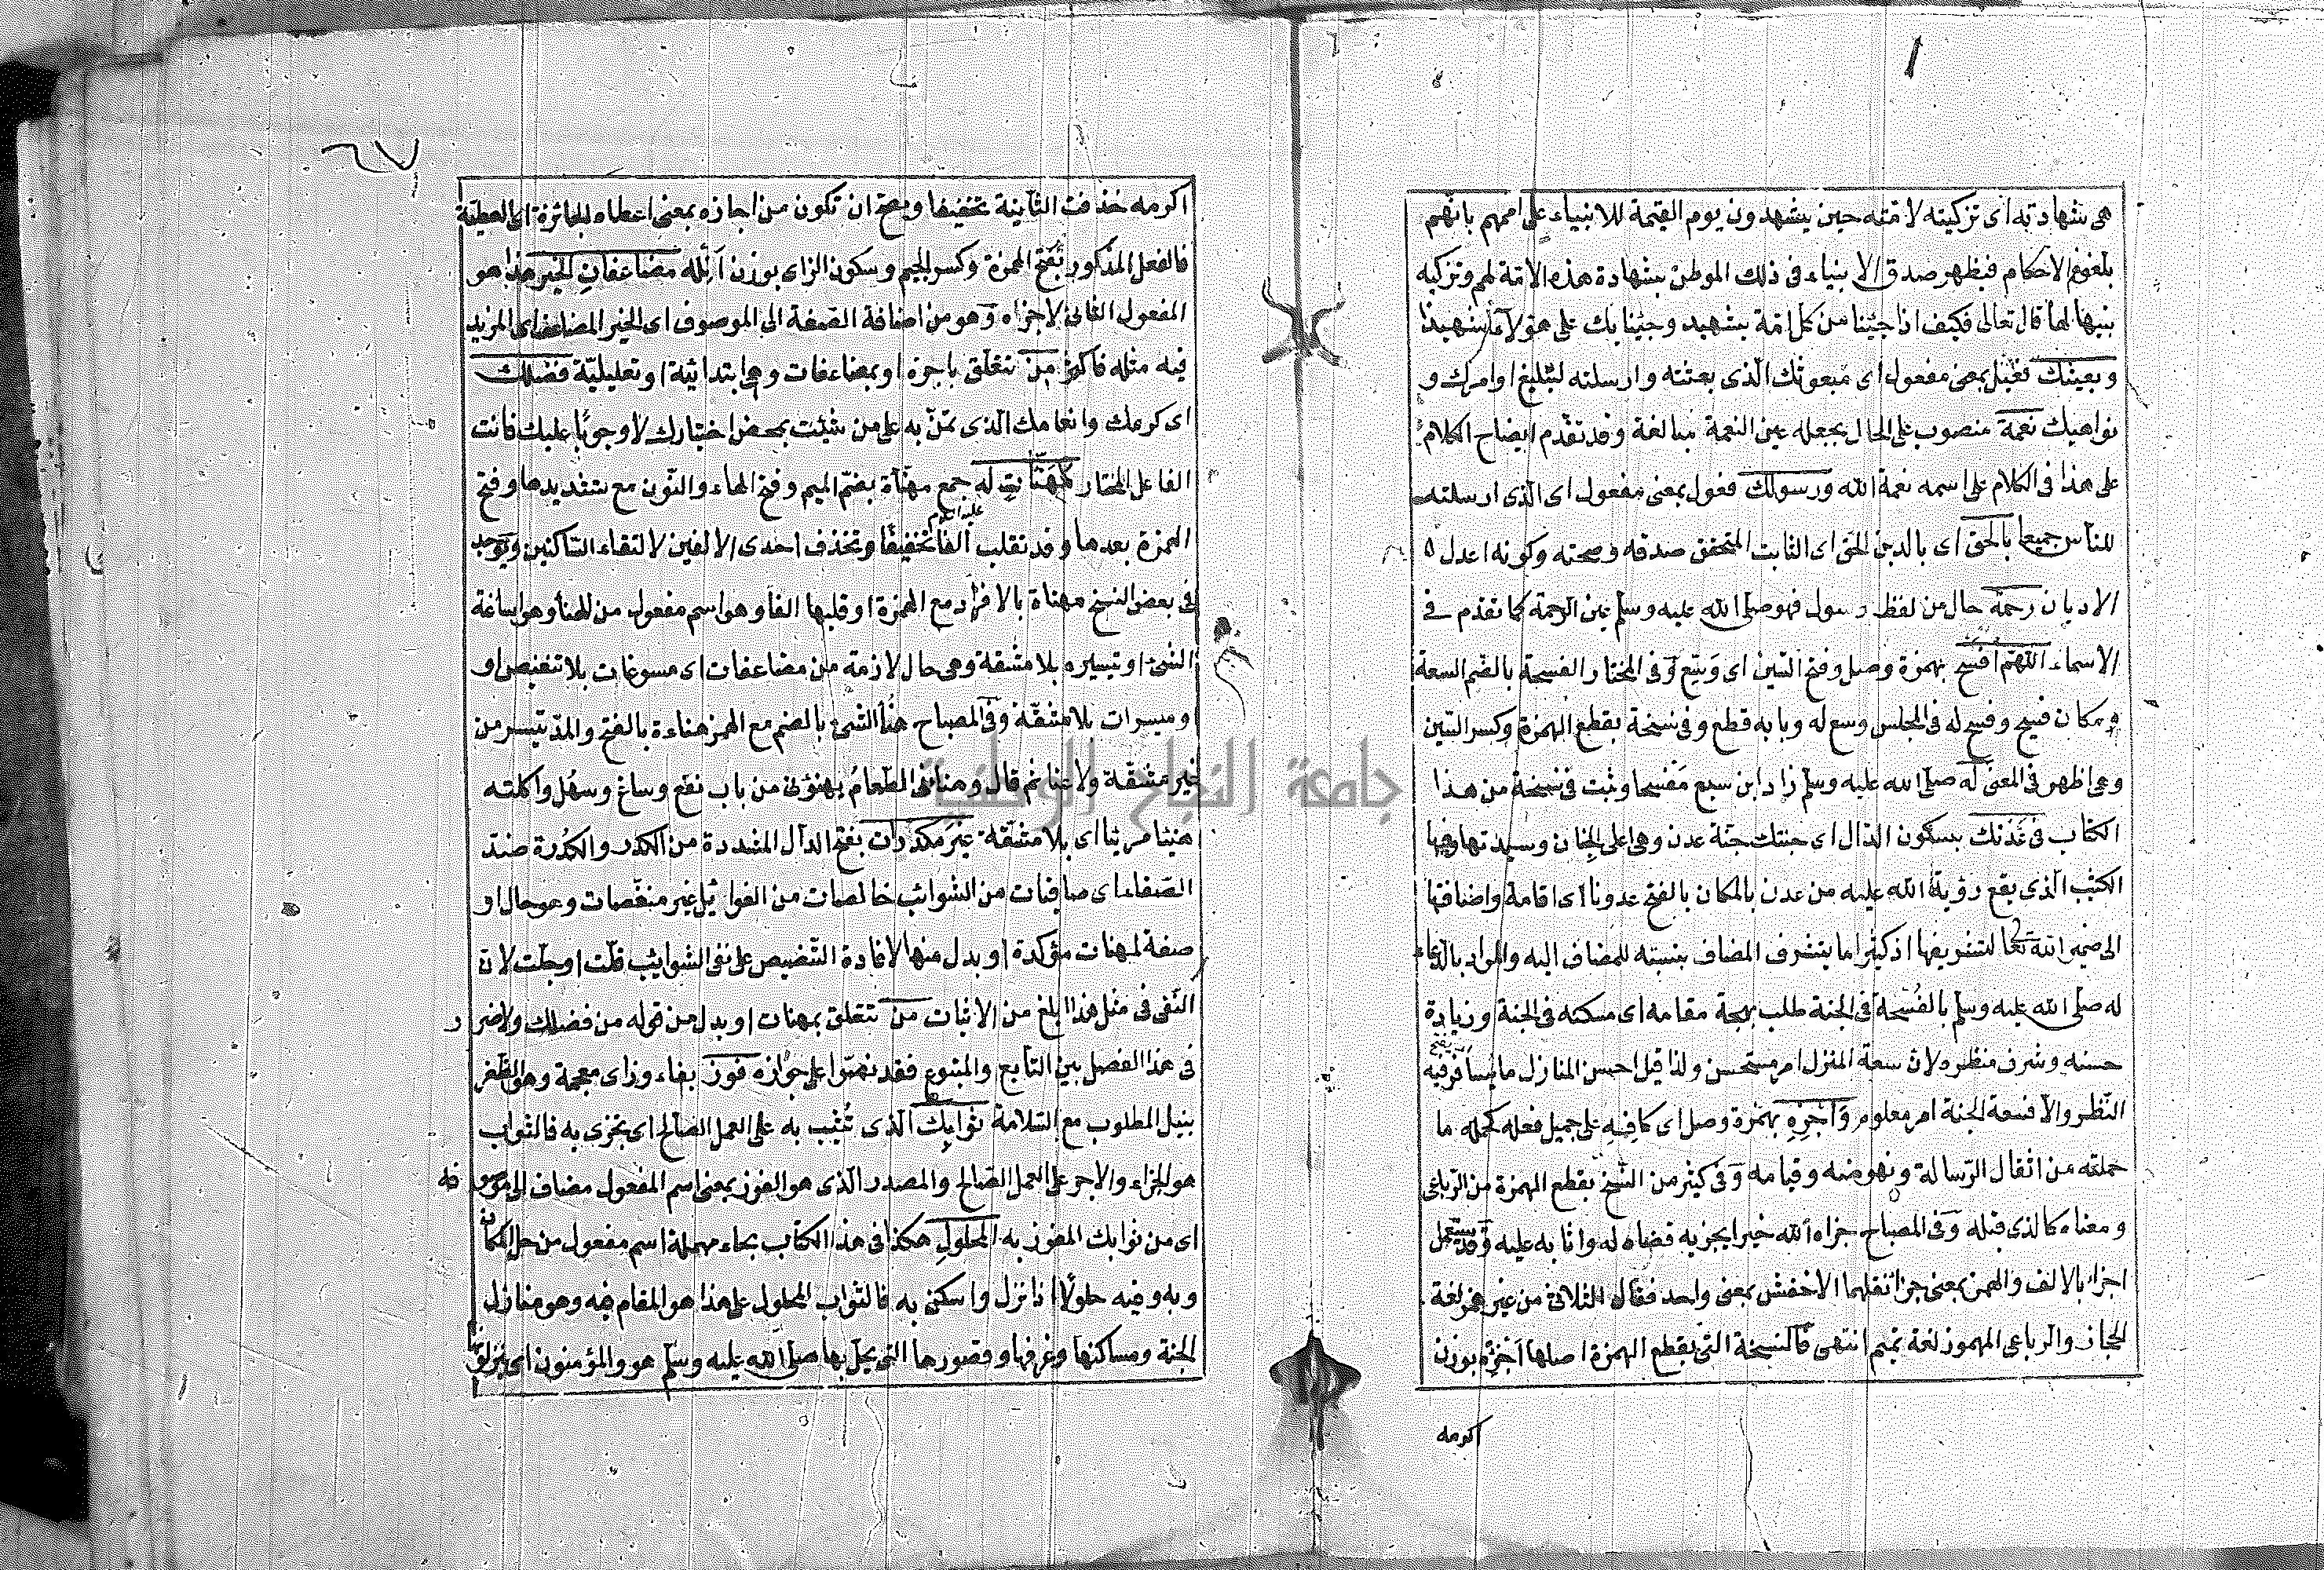 هى شهادته اى تزكيته لامته حين يشهدون يوم القيمة للانبياء على اممهم بانهم
بلغوهم الاحكام فيظهر صدق الانبياء فى ذلك الموطن بشهادة هذه الامة لهم وتزكية
نبيها لها قال تعالى فكيف اذا جئنا من كل امة بشهيد وجئنا بك على هؤلاء شهيدا
وبعيثك فعيل بمعنى مفعول اى مبعوثك الذى بعثته وارسلته لتبليغ اوامرك و
نواهيك نعمة منصوب على الحال بجعله عين النعمة مبالغة وقد تقدم ايضاح الكلام
على هذا فى الكلام على اسمه نعمة الله ورسولك فعول بمعنى مفعول اى الذى ارسلته
للناس جميعا بالحق اى بالدين الحق اى الثابت المتحقق صدقه وصحته وكونه اعدل
الاديان رحمة حال من لفظ رسول فهو صلى الله عليه وسلم عين الرحمة كما تقدم فى
الاسماء اللهم افسح بهمزة وصل وفتح السين اى وسع وفى المختار الفسحة بالضم السعة
ومكان فسيح وفسح له فى المجلس وسع له وبابه قطع وفى نسخة بقطع الهمزة وكسر السين
وهى اظهر فى المعنى له صلى الله عليه وسلم زاد ابن سبع مفسحا وثبت فى نسخة من هذا
الكتاب فى عدنك بسكون الدال اى جنتك جنة عدن وهى اعلى الجنان وسيدتها وفيها
الكثيب الذى يقع رؤية الله عليه من عدن بالمكان بالفتح عدونا اى اقامة واضافتها
الى ضمير الله تعا لتشريفها اذ كثيرا ما يتشرف المضاف بنسبته للمضاف اليه والمراد بالدعاء
له صلى الله عليه وسلم بالفسحة فى الجنة طلب بهجة مقامه اى مسكنه فى الجنة وزيادة
حسنه وشرف منظره ولان سعة المنزل امر مستحسن ولذا قيل احسن المنازل ما يسافر فيه
النظر والا فسعة الجنة امر معلوم واجزه بهمزة وصل اى كافيه على جميل فعله كحمله ما
حملته من اثقال الرسالة ونهوضه وقيامه وفى كثير من النسخ بقطع الهمزة من الرباعى
ومعناه كالذى قبله وفى المصباح جزاه الله خيرا يجزيه قضاه له واثابه عليه وقد يستعمل
اجزاء بالالف والهمز بمعنى جزا نقلهما الاخفش بمعنى واحد فقال الثلاثى من غير همز لغة
الحجاز والرباعى المهموز لغة تميم انتهى فالنسخة التى بقطع الهمزة اصلها اجزئه بوزن
اكرمه
اكرمه فحذفت الثانية تخفيفا ويصح ان تكون من اجازه بمعنى اعطاه الجائزة اى العطية
فالفعل المذكور بفتح الهمزة وكسر الجيم وسكون الزاى بوزن انله مضاعفات الخير هذا هو
المفعول الثانى لاجزاه وهو من اضافة الصفة الى الموصوف اى الخير المضاعف اى المزيد
فيه مثله فاكثر من تتعلق باجزه او بمضاعفات وهى ابتدائية او تعليلية فضلك
اى كرمك وانعامك الذى تمن به على من شئت بمحض اختيارك لا وجوبا عليك فانت
الفاعل المختار مهنئات له جمع مهنأة بضم الميم وفتح الهاء والنون مع تشديدها وفتح
الهمزة بعدها وقد تقلب الفا تخفيفا وتحذف احدى الالفين لالتقاء الساكنين ويوجد
فى بعض النسخ مهناة بالافراد مع الهمزة او قلبها الفا وهو اسم مفعول من الهنأ وهو اساغة
الشئ او تيسيره بلا مشقة وهى حال لازمة من مضاعفات اى مسوغات بلا تنغيص او
وميسرات بلا مشقة وفى المصباح هنأ الشئ بالضم مع الهمز هناءة بالفتح والمد تيسر من
غير مشقة ولا عنا ثم قال وهنانى الطعام يهنؤنى من باب نفع وساغ وسهل واكلته
هنيئا مريئا اى بلا مشقة غير مكدرات بفتح الدال المشددة من الكدر والكدرة ضد
الصفاء اى صافيات من الشوائب خالصات من الغوائل غير منغصات وهو حال او
صفة لمهنات مؤكدة او بدل منها لافادة التنصيص على نفى الشوايب قلت او جلت لان
النفى فى مثل هذا ابلغ من الاثبات من تتعلق بمهنات او بدل من قوله من فضلك ولا ضرر
فى هذا الفصل بين التابع والمتبوع فقد نصوا على جوازه فوز بفاء وزاى معجمة وهو الظفر
بنيل المطلوب مع السلامة ثوابك الذى تثيب به على العمل الصالح اى تجزى به فالثواب
هو الجزاء والاجر على العمل الصالح والمصدر الذى هو الفوز بمعنى اسم المفعول مضاف الى موصوفه
اى من ثوابك المفوز به المحلول هكذا فى هذا الكتاب بحاء مهملة اسم مفعول من حل المكان
وبه وفيه حلولا اذا نزل واسكن به فالثواب المحلول على هذا هو المقام فيه وهو منازل
الجنة ومساكنها وغرفها وقصورها التى يحل بها صلى الله عليه وسلم هو والمؤمنون اى ينزلونها
جامعة النجاح الوطنية